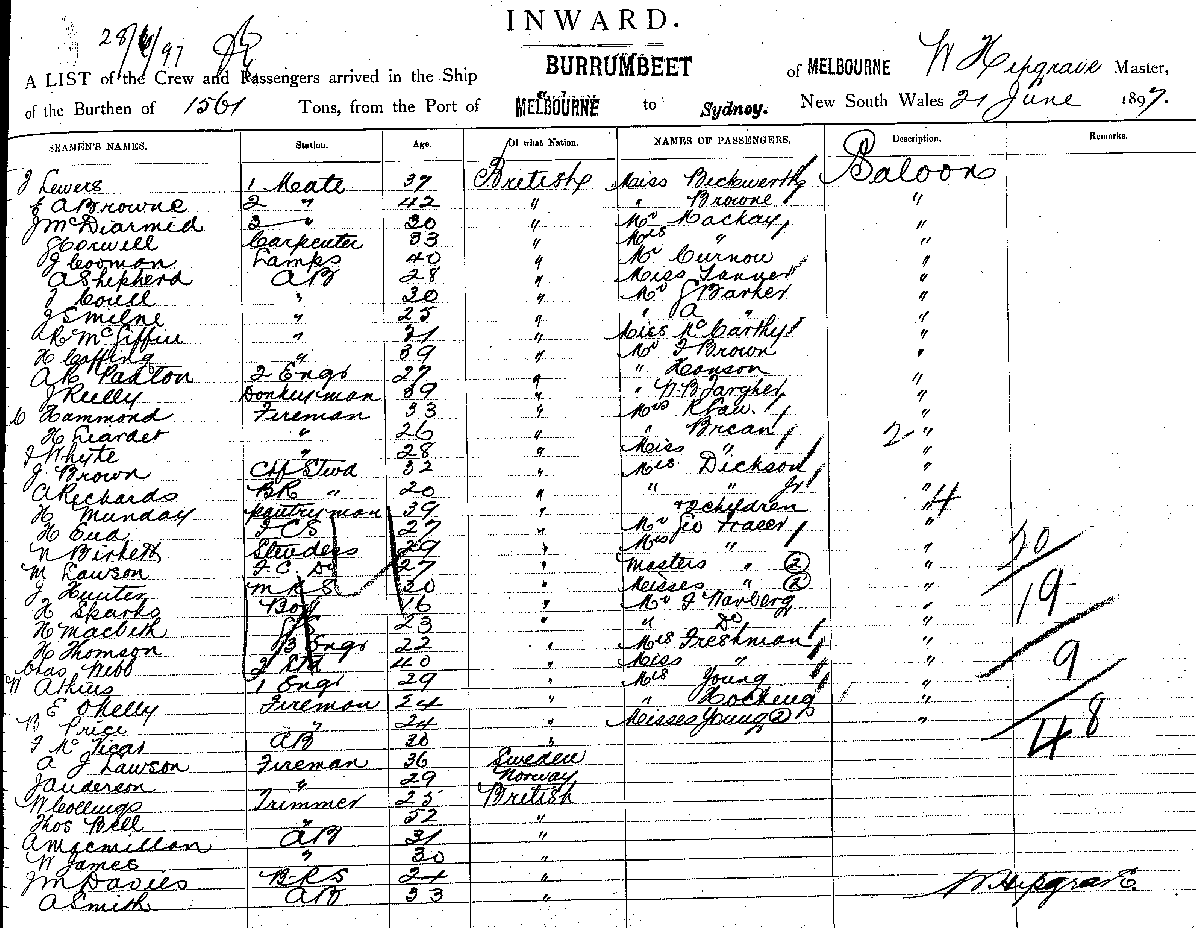 28/6/97
INWARD.
A LIST of the Crew and Passengers arrived in the Ship BURRUMBEET of MELBOURNE W Hipgrave Master,
of the Burthen of 1561 Tons, from the Port of MELBOURNE to Sydney. New South Wales 21 June 1897.
SEAMEN'S NAMES. Station. Age. Of what Nation. NAMES OF PASSENGERS. Description. Remarks.
J Lewers 1 Mate 37 British Miss Beckworth Saloon
E A Browne 2 " 42 " " Browne "
J McDiarmid 3 " 30 " Mr Mackay "
J Corwell Carpenter 33 " Mrs " "
J Cooman Lamps 40 " Mr Curnow "
A Shepherd AB 28 " Miss Tanner "
J Coull " 30 " Mr J Barker "
J S Milne " 25 " " A " "
A R McGiffin " 31 " Miss McCarthy "
H Coffing " 39 " Mr F Brown "
A R Paxton 2 Engr 27 " " Hanson "
J Reilly Donkeyman 39 " "
C Hammond Fireman 33 " Mrs "
H Liardet " 26 " " Brean 2 "
J Whyte " 28 " Miss " "
J Brown Chf Stwd 32 " Mrs Dickson "
A Richards BR " 20 " " " Jr "
H Munday Pantryman 39 " & 2 children " 4
H Eud F C S 27 " Mr Geo Fraser "
N Birkett Stewdess 29 " Mrs " " 20
M Lawson F. C. Do 27 " Masters " 2 "
J Hunter M R S 30 " Misses " 2 " 19
H Sparks Boy 16 " Mr J Warberg "
H Macbeth 23 " " Do "
H Thomson 3 Engr 22 " Mrs Freshman " 9
Chas Webb 2 40 " Miss " "
W Athins 1 Engr 29 " Mrs Young "
E OKelly Fireman 24 " " Hocking "
B Price " 24 " Misses Young 2 " 48
F McVicar AB 30 "
A J Lawson Fireman 36 Sweden
J Anderson " 29 Norway
W Collings Trimmer 25 British
Thos Bell " 52 "
A Macmillan AB 31 "
W James " 30 "
J M Davies B R S 24 " W Hipgrave
A Smith AB 33 "